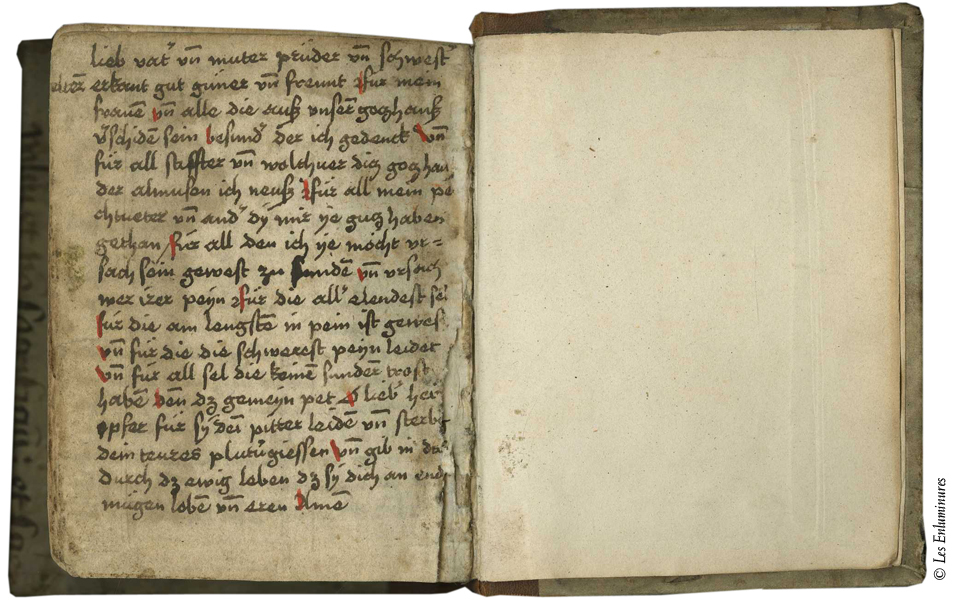 lieb vat᷑ vn̄ muter prüder vn̄ schwest᷑
erkant gut güner vn̄ freunt für mein
frauē vn̄ alle die auß vnserm goczhauß
v᷑schidē sein besund᷑ der ich gedenck vn̄
für all stiffter vn̄ diß goczhau
der almusen ich neuß für all mein pe
chtueter vn̄ and᷑ dy mir ye gucz haben
gethan für all den ich ye möcht vr=
sach sein gewest zu sundē vn̄ vrsach
wer irer peyn für die all᷑ elendest sel
für die am lengstē in pein ist gewes
vn̄ für die die schwerest peyn leidet
vn̄ für all sel die keinē sunder trost
habē dēn dz gemeyn pet O lieb her
opfer für sy dei pitter leidē vn̄ sterbē
dein teures plutu᷑giessen vn̄ gib in
durch dz ewig leben dz sy dich an end
mügen lobē vn̄ eren Amē
© Les Enluminures